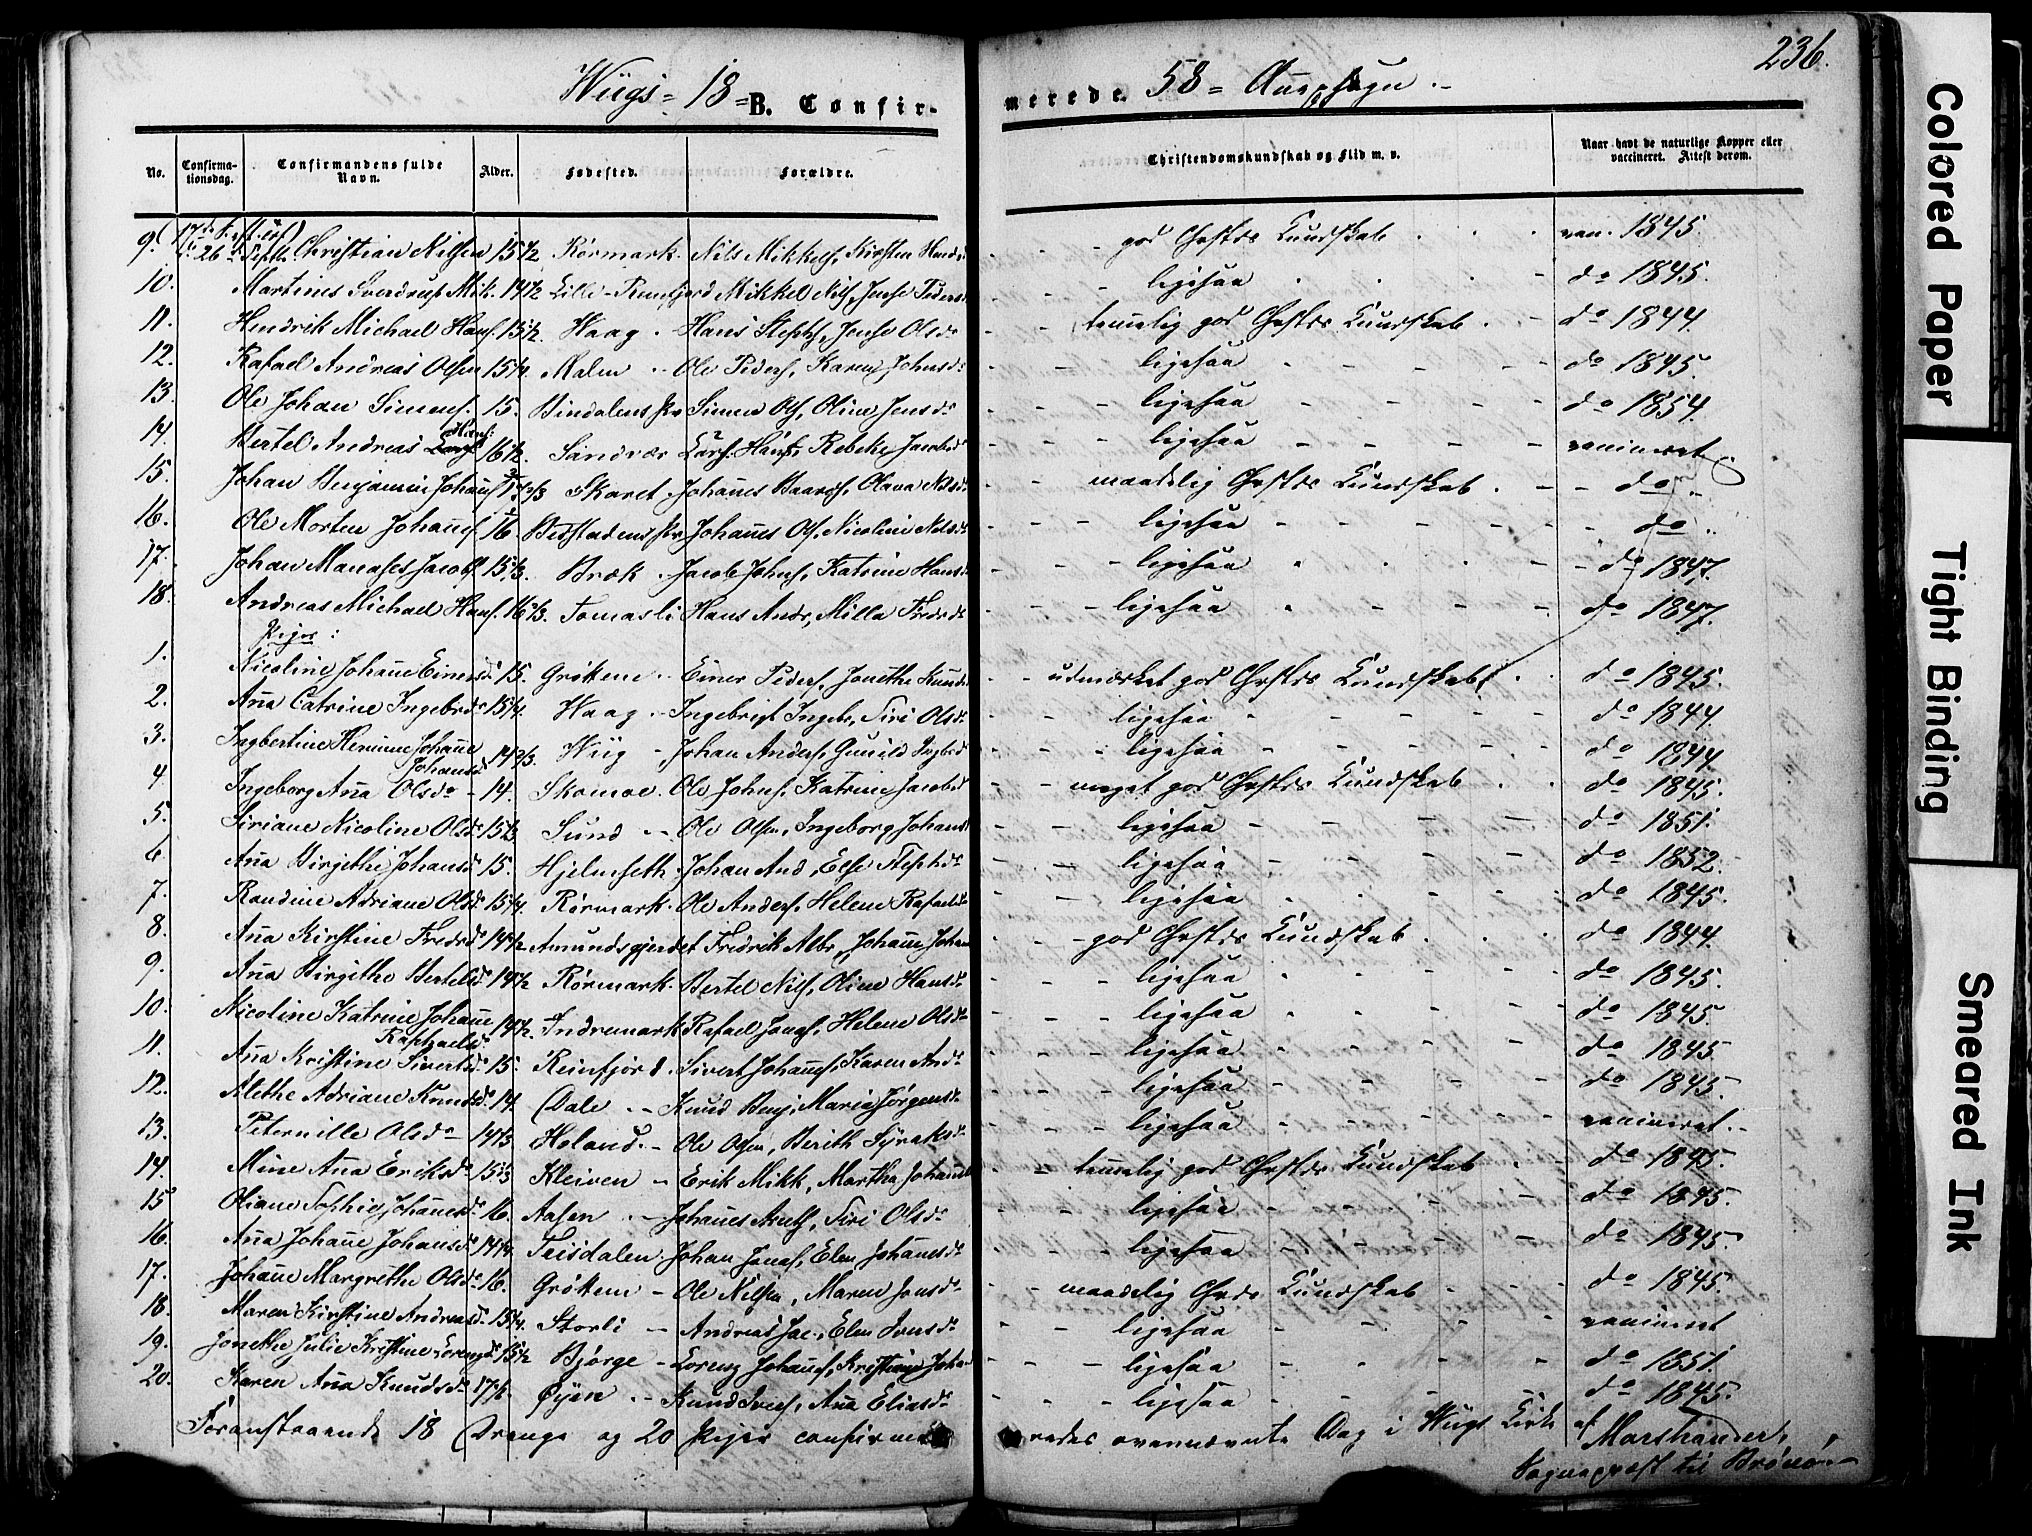 236.
Wügs = 18 = B. Confirmerede. 58 =
No. Confirmationsdag. Confirmandens fulde Navn. Alder. Fødested. Forældre. Christendomskundskab og Flid m. v. Naar havt de naturlige Kopper eller vaccineret. Attest derom.
9. 26 Septbr Christian Nilsen 15 1/2 Rørmark. Nils Mikkels, Kirsten god Chrstds Kundskab vac. 1845.
10. Martinus Sverdrup Mik. 14 1/2 Lille-Reinfjord Mikkel Nils, ligesaa do 1845.
11. Hendrik Michael Hans. 15 1/2. Waag Hans Jense Olsdr temelig god Chrstds Kundskab do 1844.
12. Rafael Andreas Olsen 15 1/4. Malm Ole Peders, Karen Johnsdr ligesaa do 1845.
13. Ole Johan Simens. 15. Bindalens Pr Simen Ols, Oline Jensdr ligesaa do 1854.
14. Bertel Andreas Hans: 16 1/2. Sandvær Lars. Hans, Rebeke Jacobsd ligesaa vaccineret
15. Johan Benjamin Johans Skaret Johanes Baards, Olava Nilsd maadelig Chrstds Kundskab do
16. Ole Morten Johans. 16 Beistadens Pr Johanes Ols, Nicoline Nilsd ligesaa do
17. Johan Manases Jacobs 15 1/3. Bræk Jacob Johns, Katrine Hansd ligesaa do 1847.
18. Andreas Michael Hans. 16 1/3. Tomasli Hans Andr, Milla Fredrd ligesaa do 1847.
Piger:
1. Nicoline Johane Einersd 15. Grøttem Einer Peders, Jonethe Knudsd udmærket god Chrstds Kundskab do 1845.
2. Ana Catrine Ingebrd 15 1/4. Waag Ingebrigt Ingebr, Siri Olsd ligesaa do 1844.
3. Ingbertine Hermine Johane Johansd 14 2/3. Wiig Johan Anders, Gunild Ingbrd ligesaa do 1844.
4. Ingeborg Ana Olsdr 14. Skomoe. Ole Johns, Katrine Jacobsd meget god Chrstds Kundskab do 1845.
5. Siriane Nicoline Olsd 15 2/3 Sund Ole Olsen, Ingeborg Johansd ligesaa do 1851.
6. Ana Birgithe Johansd 15. Hjelmseth Johan And, Else Stephdr ligesaa do 1852.
7. Randine Adriane Olsd 15 1/4. Rørmark. Ole Anders, Helene Rafaelsd ligesaa do 1845.
8. Ana Kirstine Fredrd 14 1/2 Amundsgjerdet Fredrik Albr, Johane Johan god Chrstds Kundskab do 1844.
9. Ana Birgithe Berteld 14 1/2 Rørmark. Bertel Nils, Oline Hansd ligesaa do 1845.
10. Nicoline Katrine Johane Rafaelsd 14 1/2. Indremark Rafael Jonas, Helene Olsd ligesaa do 1845.
11. Ana Kristine Sivertsd 15. Reinfjord. Sivert Johans, Karen Andd ligesaa do 1845.
12. Methe Adriane Knudsd 14. Dale Knud Benj, Maria Jørgensd ligesaa do 1845.
13. Peternille Olsdr 14 2/3 Heland. Ole Olsen, Berith Syraksd ligesaa vaccineret.
14. Mine Ana Eriksd 15 1/3 Kleiven Erik Mikk, Martha Johansd temelig god Chrstds Kundskab do 1845.
15 Oliane Sophie Johanesd 16. Aasen Johanes Siri Olsd ligesaa do 1845.
16. Ana Johane Johansd 14 3/4 Teisdalen Johan Jonas, Elen Johanesd ligesaa do 1845.
17. Johane Margrethe Olsd 16. Grøttem Ole Nilsen, Maren Jonsd maadelig Chrds Kundskab do 1845.
18. Maren Kirstine Andreasd 15 1/4. Storli Andreas Jac, Elen Iversd ligesaa vaccineret
19. Jonethe Julie Kristine Lorenzd 15 1/2 Bjørge Lorenz Johans, Kristiane Johan ligesaa do 1851.
20. Karen Ana Knudsd 17 1/2. Øyen Knud Ivers, Ana Eliasd ligesaa do 1845.
Foranstaaende 18 Drenge og 20 Piger confirmeredes ovennævnte Dag i Wügs Kirke af
Sognepræst til Brønø
Colored Paper
Tight Binding
Smeared Ink